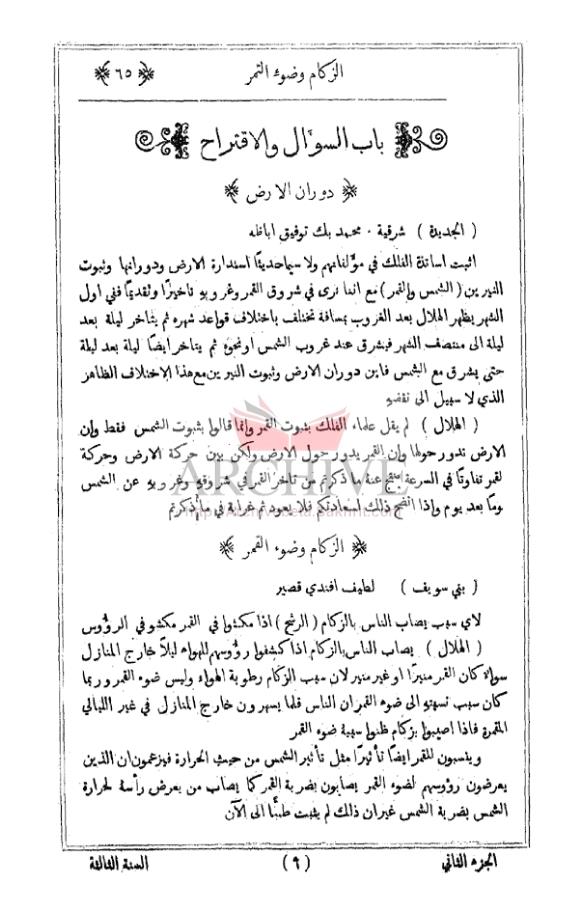 الزكام وضوء القمر
﴿ ٦٥ ﴾
باب السوٴال والاقتراح
﴿ دوران الارض ﴾
( الجديدة ) شرقية ٠ محمد بك توفيق اباظه
اثبت اساتذة الفلك في موٴلفاتهم ولا سيما حديثًا استدارة الارض ودورانها وثبوت
النيرين ( الشمس والقمر ) مع اننا نرى في شروق القمر وغروبو تاخيرًا وتقديمًا ففي اول
الشهر يظهر الهلال بعد الغروب بمسافة تختلف باختلاف قواعد شهره ثم يتاخر ليلة بعد
ليلة الى منتصف الشهر فيشرق عند غروب الشمس اونحوه ثم يتاخر ايضًا ليلة بعد ليلة
حتى يشرق مع الشمس فاين دوران الارض وثبوت النيرين مع هذا الاختلاف الظاهر
الذي لا سبيل الى نقضو
( الهلال ) لم يقل علماء الفلك بثبوت القمر وانما قالوا بثبوت الشمس فقط وان
الارض تدور حولها وان القمر يدور حول الارض ولكن بين حركة الارض وحركة
لقمر تفاوتًا في السرعة ينتج عنة ما ذكرتم من تاخر القمر في شروقو وغروبو عن الشمس
ومًا بعد يوم واذا اتضح ذلك لسعادتكم فلا يعود ثم غرابة في ما ذكرتم
﴿ الزكام وضوء القمر ﴾
( بني سويف ) لطيف افندي قصير
لاي سبب يصاب الناس بالزكام ( الرشح ) اذا مكثوا في القمر مكشوفي الروٴوس
( الهلال ) يصاب الناس بالزكام اذا كشفوا روٴوسهم للهواء ليلًا خارج المنازل
سواء كان القمر منيرًا او غير منير لان سبب الزكام رطوبة الهواء وليس ضوء القمر وربما
كان سبب نسبتو الى ضوء القمر ان الناس قلما يسهرون خارج المنازل في غير الليالي
المقمرة فاذا اصيبوا بزكام ظنوا سببة ضوء القمر
وينسبون للقمر ايضًا تأثيرًا مثل تأثير الشمس من حيث الحرارة فيزعمون ان الذين
يعرضون روٴوسهم لضوء القمر يصابون بضربة القمر كما يصاب من يعرض رأسة لحرارة
الشمس بضربة الشمس غير ان ذلك لم يثبت طبيًا الى الآن
الجزء الثاني
( ٩ )
السنة الثالثة
ARCHIVE